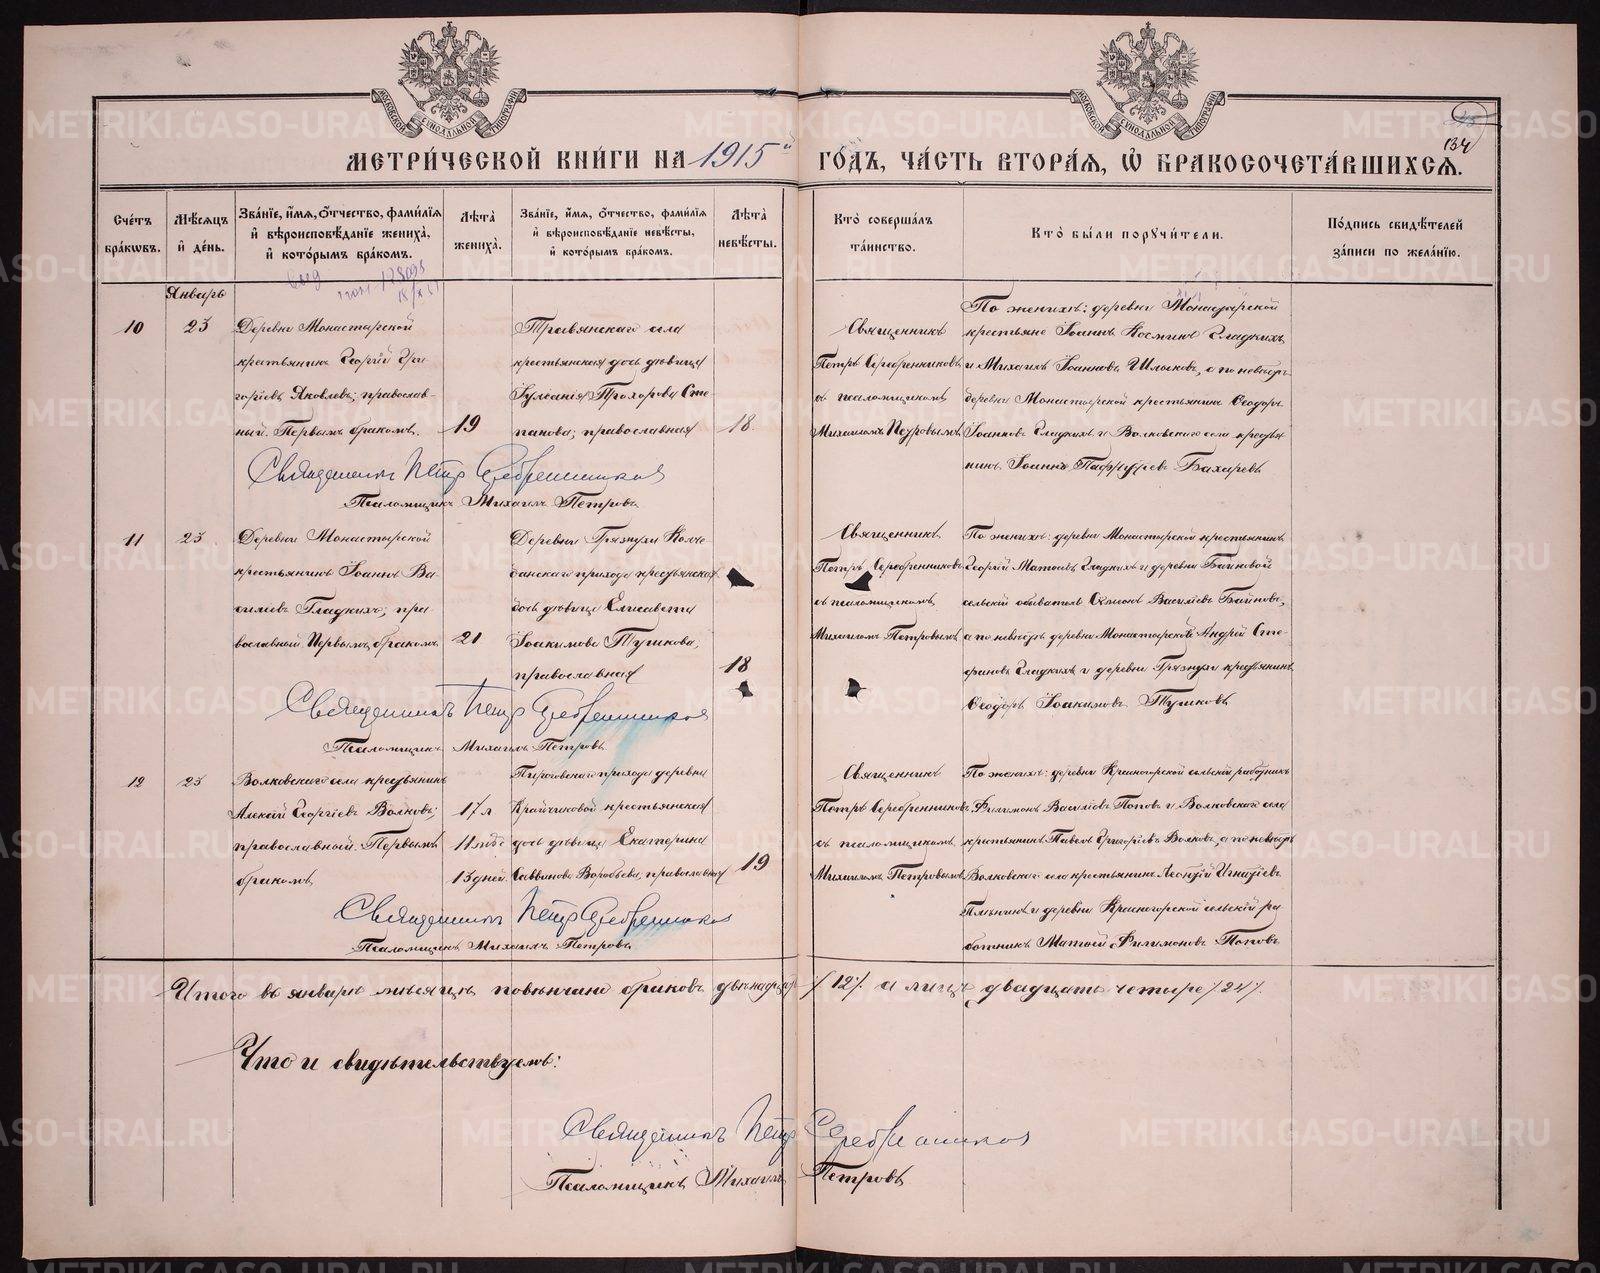 МОСКОВСКОЙ СѴНОДАЛЬНОЙ ТИПОГРАФІИ
МОСКОВСКОЙ СѴНОДАЛЬНОЙ ТИПОГРАФІИ
134
МЕТРИ́ЧЕСКОЙ КНИ́ГИ НА 1915й ГО́ДЪ, ЧА́СТЬ ВТОРА́Я, Ѡ БРАКОСОЧЕТА́ВШИХСЯ.
Сче́тъ бра́кѡвъ.
Мѣ́сяцъ и҆ де́нь.
Зва́нїе, и҆́мя, ѻ҆́тчество, фами́лїя и҆ вѣроисповѣ́данїе жениха̀, и҆ кото́рымъ бра́комъ.
Лѣ́та жениха̀.
Зва́нїе, и҆́мя, ѻ҆́тчество, фами́лїя и҆ вѣроисповѣ́данїе невѣ́сты, и҆ кото́рымъ бра́комъ.
Лѣ́та невѣ́сты.
Кто̀ соверша́лъ та́инство.
Кто̀ бы́ли порꙋчи́тели.
По́дпись свидѣ́телей за́писи по жела́нїю.
Январь
10
23
Деревни Монастырской
крестьянинъ Георгій Гри
горіевъ Яковлевъ; православ-
ный. Первымъ бракомъ.
19
Травянскаго села
крестьянская дочь дѣвица
Іуліанія Прохорова Сте
панова; православная
18
Священникъ
Петръ Серебренниковъ
съ псаломщикомъ
Михаиломъ Петровымъ
По женихѣ: деревни Монастырской
крестьяне Іоаннъ Косминъ Гладкихъ
и Михаилъ Іоанновъ Шлыковъ, а по невѣстѣ
деревни Монастырской крестьянинъ Ѳеодоръ
Іоанновъ Гладкихъ и Волковскаго села кресть
янинъ Іоаннъ Бахаревъ
Священникъ Петръ Серебренниковъ
Псаломщикъ Михаилъ Петровъ
11
23
Деревни Монастырской
крестьянинъ Іоаннъ Ва-
силіевъ Гладкихъ; пра
вославный. Первымъ бракомъ
21
Деревни Грязнухи Колче
данскаго прихода крестьянская
дочь дѣвица Елисавета
Іоакимова Тушкова;
православная
18
Священникъ
Петръ Серебренниковъ
съ псаломщикомъ
Михаиломъ Петровымъ
По женихѣ: деревни Монастырской крестьянинъ
Георгій Гладкихъ и деревни Байновой
сельскій обыватель Василіевъ Байновъ,
а по невѣстѣ деревни Монастырской Андрей Сте-
фановъ Гладкихъ и деревни Грязнухи крестьянинъ
Ѳеодоръ Іоакимовъ Тушковъ
Священникъ Петръ Серебренниковъ
Псаломщикъ Михаилъ Петровъ
12
23
Волковскаго села крестьянинъ
Алексій Георгіевъ Волковъ;
православный. Первымъ
бракомъ
17 л
11 мѣс
13 дней
прихода деревни
крестьянская
дочь дѣвица Екатерина
Саввинова Воробьева, православная
19
Священникъ
Петръ Серебренниковъ
съ псаломщикомъ
Михаиломъ Петровымъ
По женихѣ: деревни Красногорской сельскій работникъ
Филимонъ Василіевъ Поповъ и Волковскаго села
крестьянинъ Павелъ Григоріевъ Волковъ, а по невѣстѣ
Волковскаго села крестьянинъ Игнатіевъ
и деревни Красногорской сельскій ра
ботникъ Матѳей Филимоновъ Поповъ
Священникъ Петръ Серебренниковъ
Псаломщикъ Михаилъ Петровъ
Итого въ январѣ мѣсяцѣ повѣнчано браковъ двѣнадцать /12/. а лицъ двадцать четыре /24/.
Что и свидѣтельствуемъ:
Священникъ Петръ Серебренниковъ
Псаломщикъ Михаилъ Петровъ
METRIKI.GASO-URAL.RU